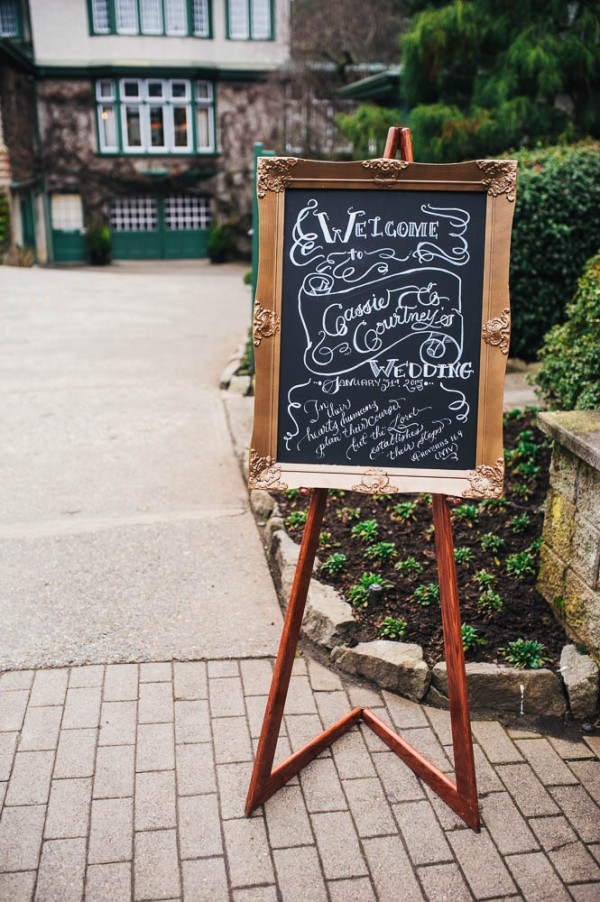 WELCOME
to
Cassie &
Courtney's
WEDDING
JANUARY 31st, 2015
In their
hearts humans
plan their course
but the Lord
establishes
their steps
Proverbs 16:9
(NIV)